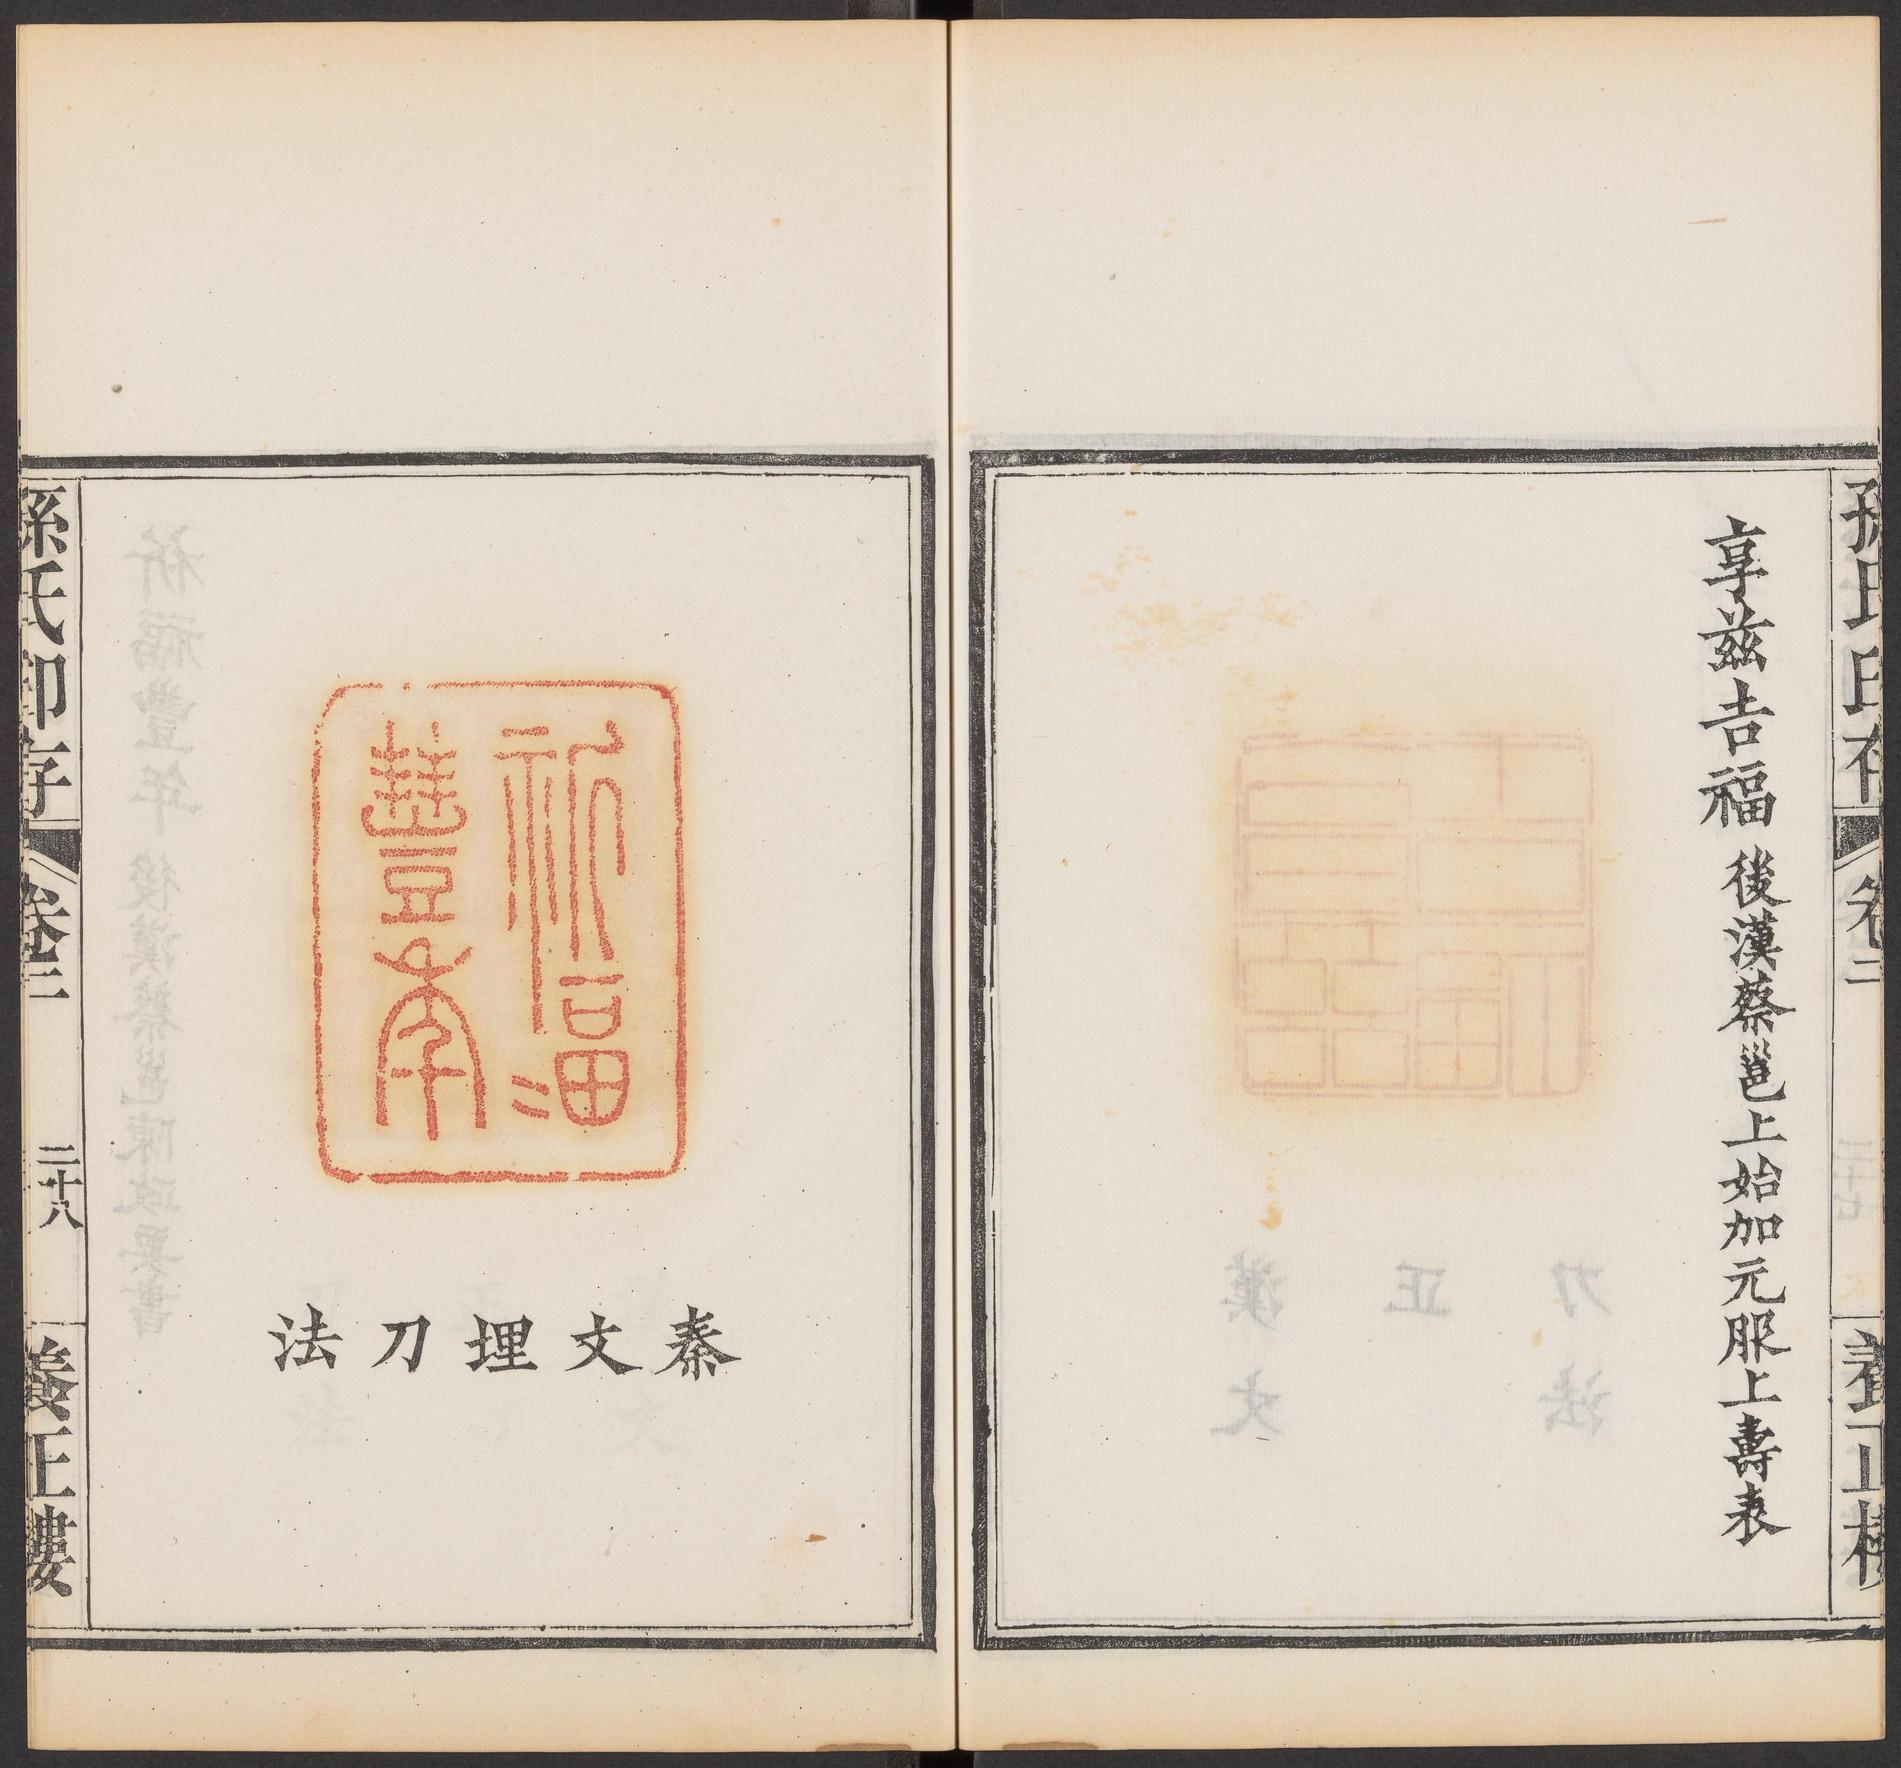 孫氏印存 卷二 養正樓
享兹吉福 後漢蔡邕上始加元服上壽表
祈福
豐年
秦文埋刀法
孫氏印存 卷二 二十八 養正樓